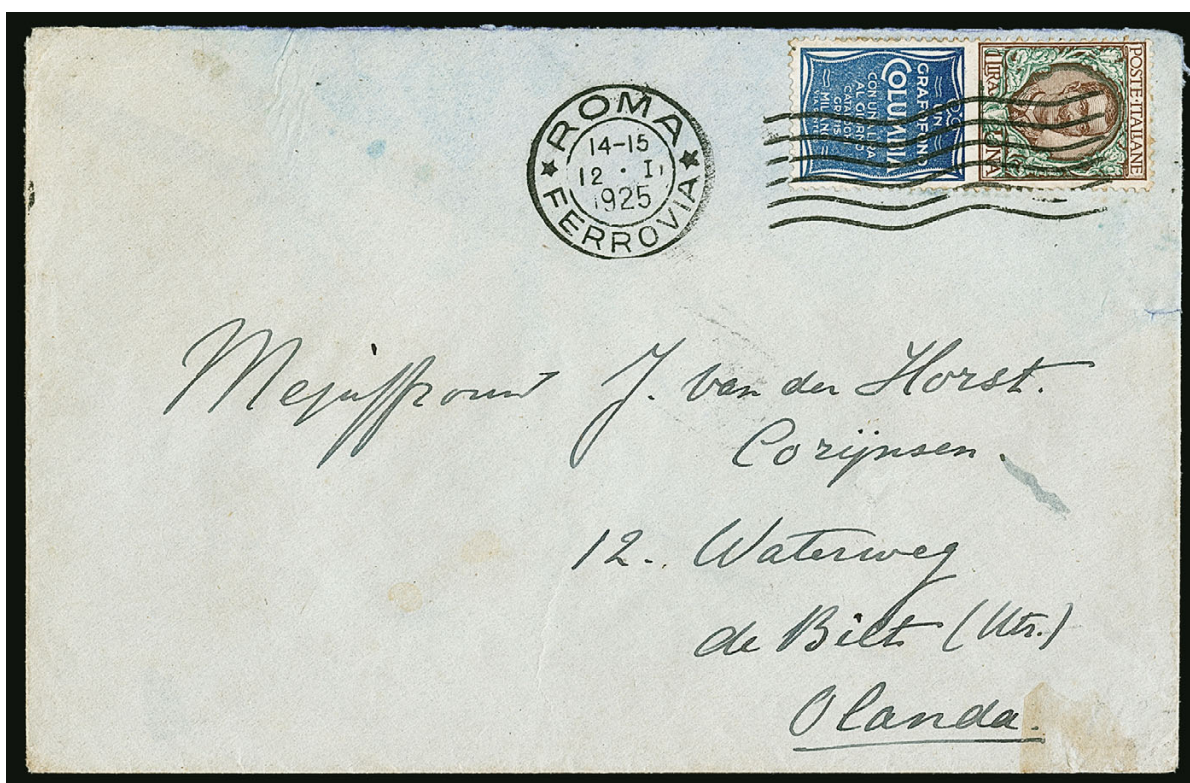 ROMA
14-15
12 · I
1925
FERROVIA
UN
GRAFOFONO
COLUMBIA
CON UNA LIRA
AL GIORNO
CATALOGO
GRATIS
MILANO
POSTE·ITALIANE
1 LIRA
Mejuffrouw J. van der Horst.
Corijnsen.
12. Waterweg
de Bilt (Utr.)
Olanda.